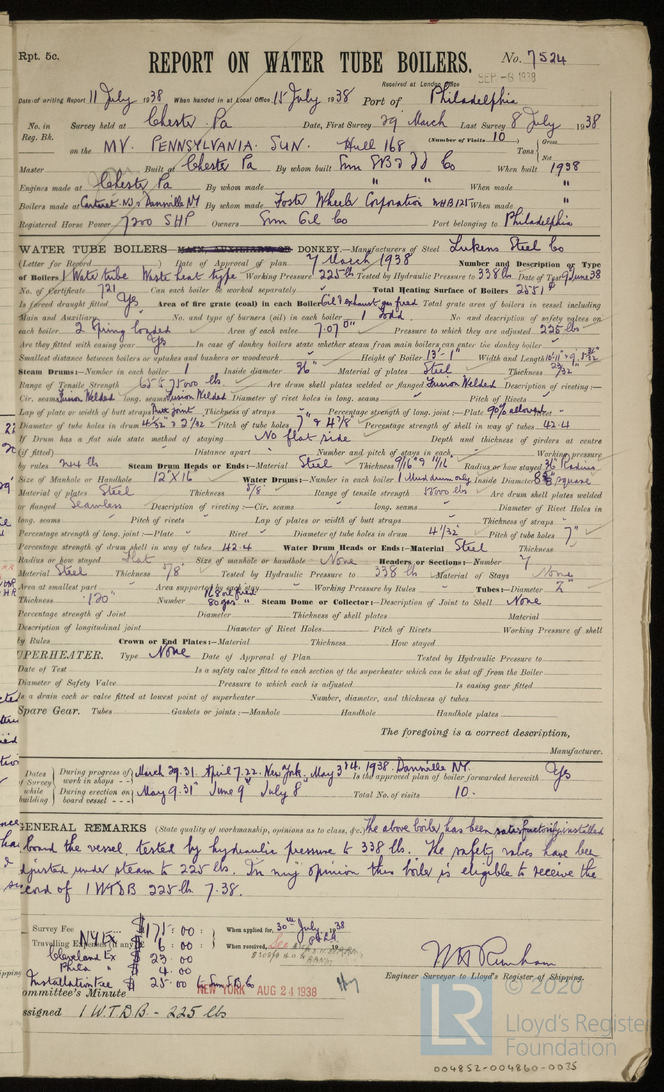 Rpt. 5c.
REPORT ON WATER TUBE BOILERS.
No. 7524
Received at London Office
SEP -6 1938
Date of writing Report 11 July 1938 When handed in at Local Office 11 July 1938 Port of Philadelphia
No. in Reg. Bk.
Survey held at Chester Pa Date, First Survey 29 March Last Survey 8 July 1938
(Number of Visits 10)
on the MV. PENNSYLVANIA SUN. Hull 168 Tons Gross Net
Master Built at Chester Pa By whom built Sun SB & DD Co When built 1938
Engines made at Chester Pa By whom made " " When made "
Boilers made at Carteret NJ & Dannville NY By whom made Foster Wheeler Corporation When made "
Registered Horse Power 7200 SHP Owners Sun Oil Co Port belonging to Philadelphia
WATER TUBE BOILERS MAIN, AUXILIARY, OR DONKEY.—Manufacturers of Steel Lukens Steel Co
(Letter for Record ) Date of Approval of plan 7 March 1938 Number and Description or Type
of Boilers 1 Water tube Waste heat type Working Pressure 225 lb Tested by Hydraulic Pressure to 338 lb. Date of Test 9 June 38
No. of Certificate 721 Can each boiler be worked separately Total Heating Surface of Boilers 2551
Is forced draught fitted Yes Area of fire grate (coal) in each Boiler Oil & exhaust gas fired Total grate area of boilers in vessel including
Main and Auxiliary No. and type of burners (oil) in each boiler 1 Todd No. and description of safety valves on
each boiler 2 Spring loaded Area of each valve 7.07 Pressure to which they are adjusted 225 lbs
Are they fitted with easing gear Yes In case of donkey boilers state whether steam from main boilers can enter the donkey boiler
Smallest distance between boilers or uptakes and bunkers or woodwork Height of Boiler 13'-1" Width and Length
Steam Drums:—Number in each boiler 1 Inside diameter 36" Material of plates Steel Thickness 23/32"
Range of Tensile Strength 65 & 75000 lbs Are drum shell plates welded or flanged Fusion Welded Description of riveting:—
Cir. seams Fusion Welded long. seams Fusion Welded Diameter of rivet holes in long. seams Pitch of Rivets
Lap of plate or width of butt straps Thickness of straps Percentage strength of long. joint:—Plate 90% allowed Rivet
Diameter of tube holes in drum 4 1/32" & 2 1/32 Pitch of tube holes 7" & 4 3/8 Percentage strength of shell in way of tubes 42.4
If Drum has a flat side state method of staying No flat side Depth and thickness of girders at centre
(if fitted) Distance apart Number and pitch of stays in each Working pressure
by rules 244 lb Steam Drum Heads or Ends:—Material Steel Thickness 9/16" & 11/16" Radius or how stayed 36" Radius
Size of Manhole or Handhole 12"X16 Water Drums:—Number in each boiler 1 Mud drum only Inside Diameter 8 5/8 square
Material of plates Steel Thickness 5/8 Range of tensile strength 58000 lbs Are drum shell plates welded
or flanged Seamless Description of riveting:—Cir. seams long. seams Diameter of Rivet Holes in
long. seams Pitch of rivets Lap of plates or width of butt straps Thickness of straps
Percentage strength of long. joint:—Plate Rivet Diameter of tube holes in drum 4 1/32" Pitch of tube holes 7"
Percentage strength of drum shell in way of tubes 42.4 Water Drum Heads or Ends:—Material Steel Thickness
Radius or how stayed Flat Size of manhole or handhole None Headers or Sections:—Number 7
Material Steel Thickness 5/8" Tested by Hydraulic Pressure to 338 lb Material of Stays None
Area at smallest part Area supported by each stay Working Pressure by Rules Tubes:—Diameter 2"
Thickness .120" Number 168 oil fired 80 gas " Steam Dome or Collector:—Description of Joint to Shell None
Percentage strength of Joint Diameter Thickness of shell plates Material
Description of longitudinal joint Diameter of Rivet Holes Pitch of Rivets Working Pressure of shell
by Rules Crown or End Plates:—Material Thickness How stayed
UPERHEATER. Type None Date of Approval of Plan Tested by Hydraulic Pressure to
Date of Test Is a safety valve fitted to each section of the superheater which can be shut off from the Boiler
Diameter of Safety Valve Pressure to which each is adjusted Is easing gear fitted
Is a drain cock or valve fitted at lowest point of superheater Number, diameter, and thickness of tubes
Spare Gear. Tubes Gaskets or joints:—Manhole Handhole Handhole plates
The foregoing is a correct description,
Manufacturer.
Dates of Survey while building
During progress of work in shops - - March 29.31. April 7.22. New York, May 3rd 4. 1938. Dannville NY.
Is the approved plan of boiler forwarded herewith Yes
During erection on board vessel - - - May 9.31" June 9" July 8" Total No. of visits 10.
GENERAL REMARKS (State quality of workmanship, opinions as to class, &c. The above boiler has been satisfactorily installed
board the vessel, tested by hydraulic pressure to 338 lbs. The safety valves have been
djusted under steam to 225 lbs. In my opinion this boiler is eligible to receive the
ecord of 1 WTDB 225 lb 7.38.
Survey Fee $171:00 When applied for, 30th July 1938
Travelling Expenses (if any) NY Ex $ 6:00 When received, 19
Cleveland Ex $ 23:00
Phila " $ 4.00
Installation Fee $ 25.00 to Sun SB Co
Engineer Surveyor to Lloyd's Register of Shipping.
ommittee's Minute NEW YORK AUG 24 1938
ssigned 1 W.T.D.B. - 225 lbs
© 2020
LR
Lloyd's Register
Foundation
004852-004860-0035